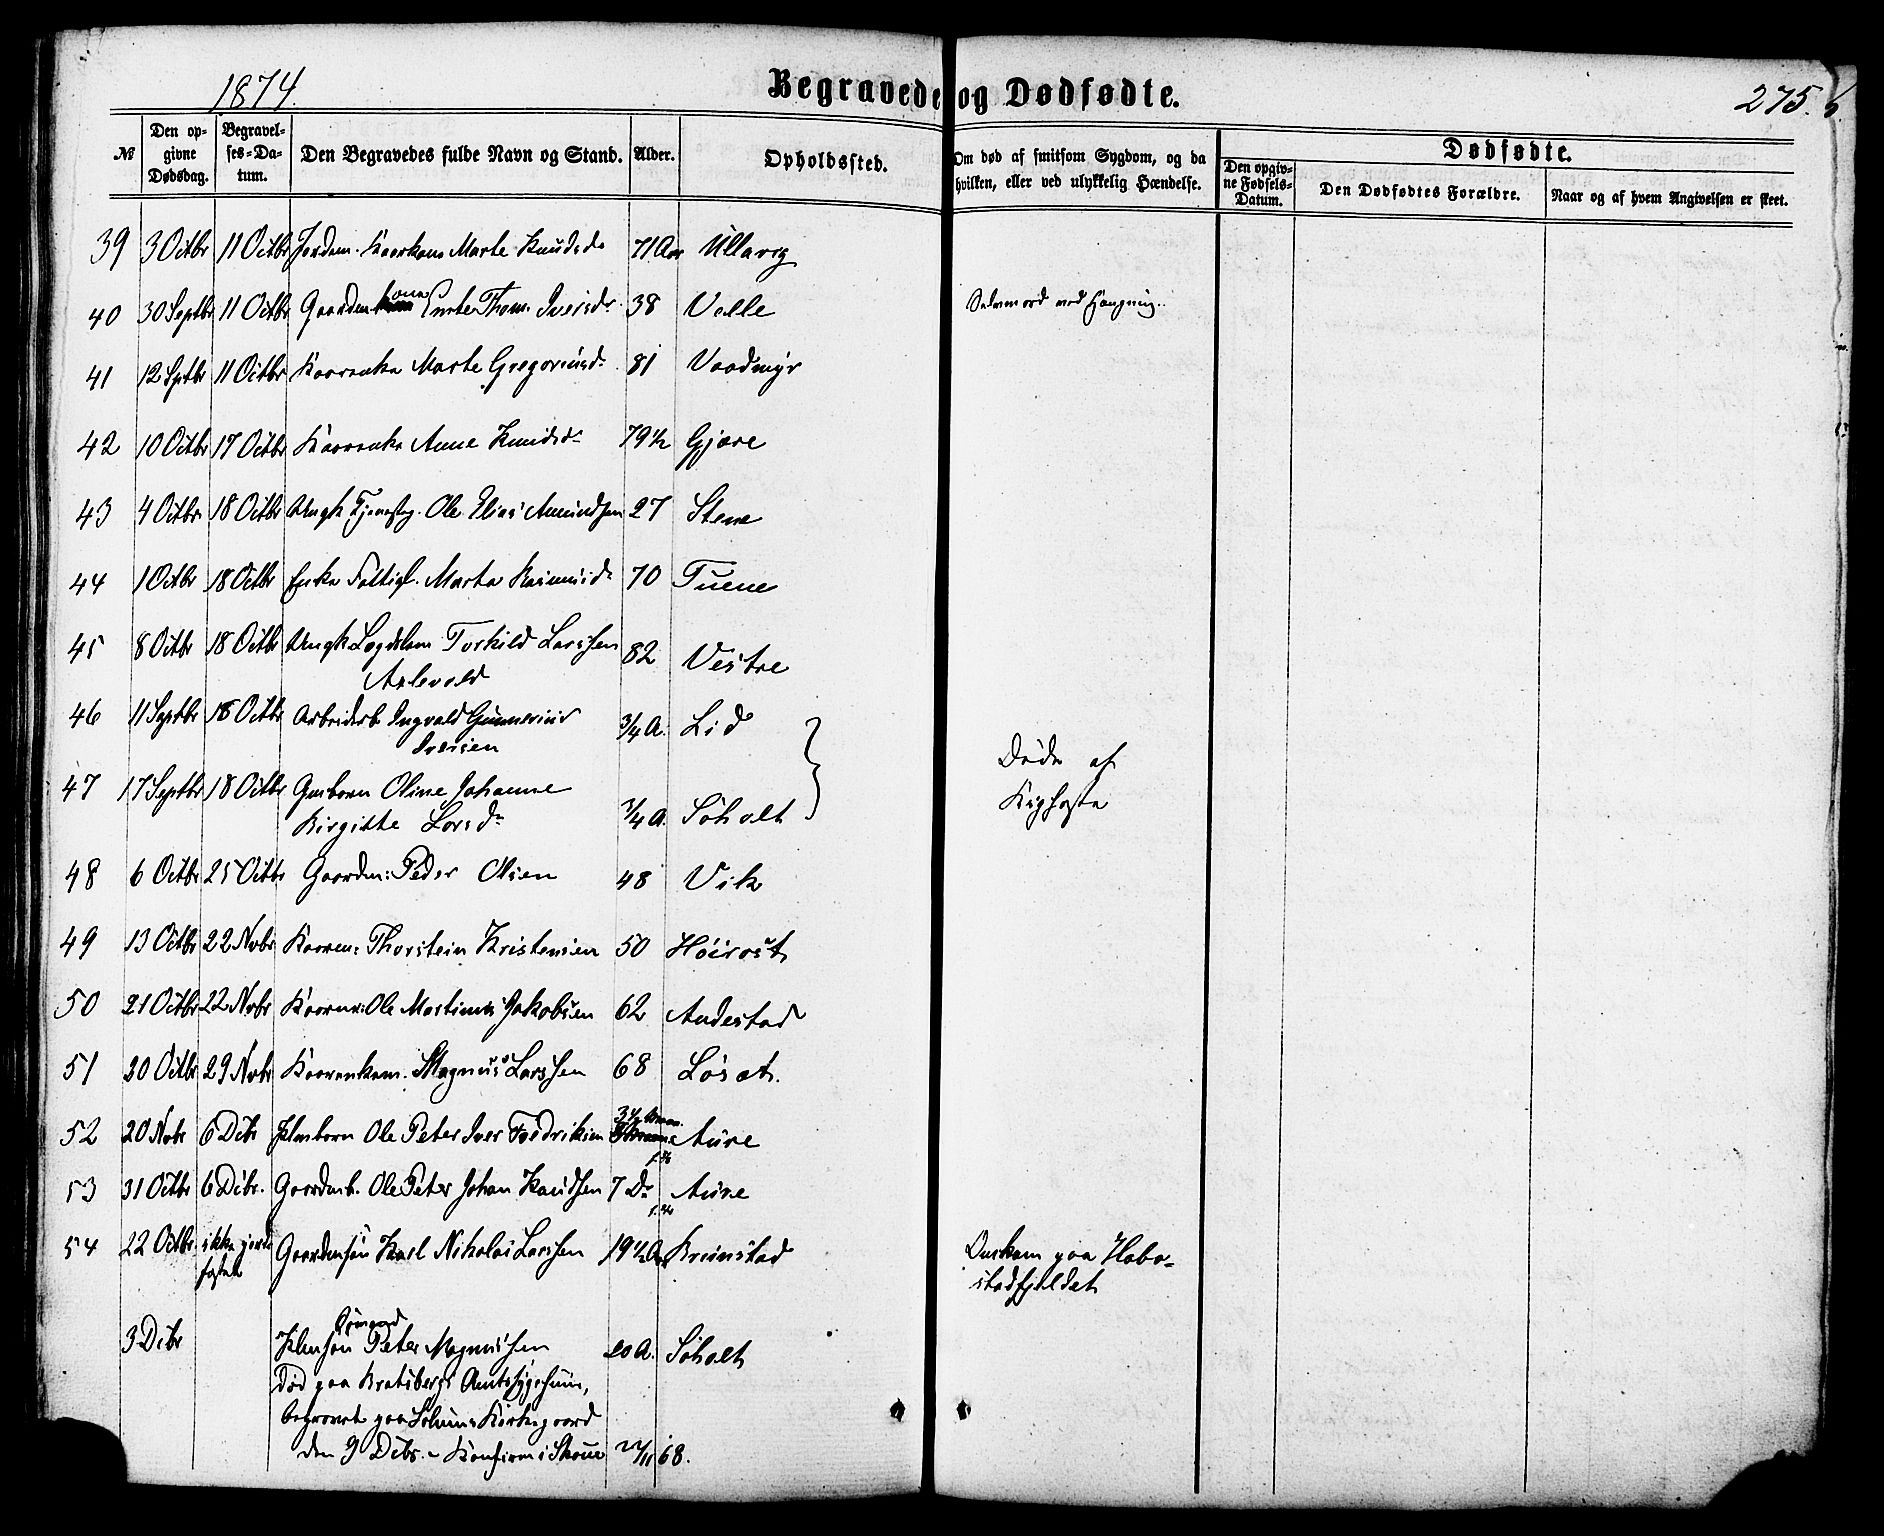 1874.
Begravede og Dødfødte.
275.
№
Den op-
givne
Dødsdag.
Begravel-
ses-Da-
tum.
Den Begravedes fulde Navn og Stand.
Alder.
Opholdssted.
Om død af smitsom Sygdom, og da
hvilken, eller ved ulykkelig Hændelse.
Dødfødte.
Den opgiv-
ne Fødsels-
Datum.
Den Dødfødtes Forældre.
Naar og af hvem Angivelsen er skeet.
39 3 Octbr 11 Octbr Marte Knudsdr 71 Aar Ullavig
40 30 Septbr 11 Octbr Gaardmkone Thom. Iversdr. 38 Velle Selvmord ved Hængning.
41 12 Sptbr 11 Octbr Kaarenke Marte Gregoriusdr 81 Vaadmyr
42 10 Octbr 17 Octbr Kaarenke Anne Knudsdr 79½ Gjære
43 4 Octbr 18 Octbr Ungk Tjenestg. Ole Elias Amundsen 27 Stene
44 1 Octbr 18 Octbr Enke Fattigl. Marta Rasmusdr 70 Tuene
45 8 Octbr 18 Octbr Ungk Lægdslem Torkild Larssen 82 Vestre
46 11 Septbr 18 Octbr Arbeiderb Ingvald Gunnerius ¾ A. Lid
Iversen
Døde af
47 17 Septbr 18 Octbr Gmbarn Oline Johanne
Kighoste
Birgitte Larsdr ¾ A. Søholt
48 6 Octbr 25 Octbr Gaardm: Peder Olsen 48 Vik
49 13 Octbr 22 Nvbr Kaarm: Thorstein Kristensen 50
50 21 Octbr 22 Nvbr Kaarm: Ole Martinus Jakobsen 62 Andestad
51 20 Octbr 29 Nvbr Kaarenkem. Magnus Larssen 68 Løset.
52 20 Nvbr 6 Dcbr Ole Peter Iver Fredriksen Aure
53 31 Octbr 6 Dcbr. Gaardmb. Ole Peter Johan Knudsen 7 Do Aure
54 22 Octbr ikke jord- Gaardmsøn Karl Nikolai Larssen 19½ A Omkom paa
fæstet
stadfjeldet
3 Dcbr Peter Magnussen 20 A. Søholt
Død paa Bratsbergs Amtssygehuus,
begravet paa Solums Kirkegaard
den 9 Dcbr. - Konfirm i Skoue 22/11 68.